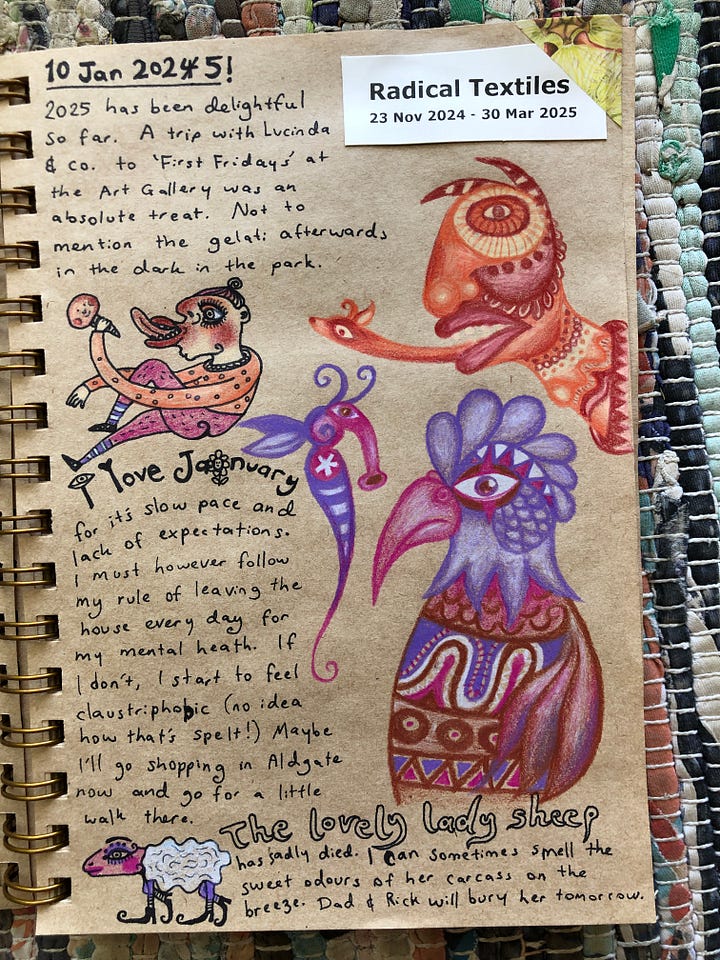 10 Jan 20245!
Radical Textiles
23 Nov 2024 - 30 Mar 2025
2025 has been delightful
so far. A trip with Lucinda
& co. to 'First Fridays' at
the Art Gallery was an
absolute treat. Not to
mention the gelati afterwards
in the dark in the park.
I love January
for it's slow pace and
lack of expectations.
I must however follow
my rule of leaving the
house every day for
my mental heath. If
I don't, I start to feel
claustriphobic (no idea
how that's spelt!) Maybe
I'll go shopping in Aldgate
now and go for a little
walk there.
The lovely lady sheep
has sadly died. I can sometimes smell the
sweet odours of her carcass on the
breeze. Dad & Rick will bury her tomorrow.